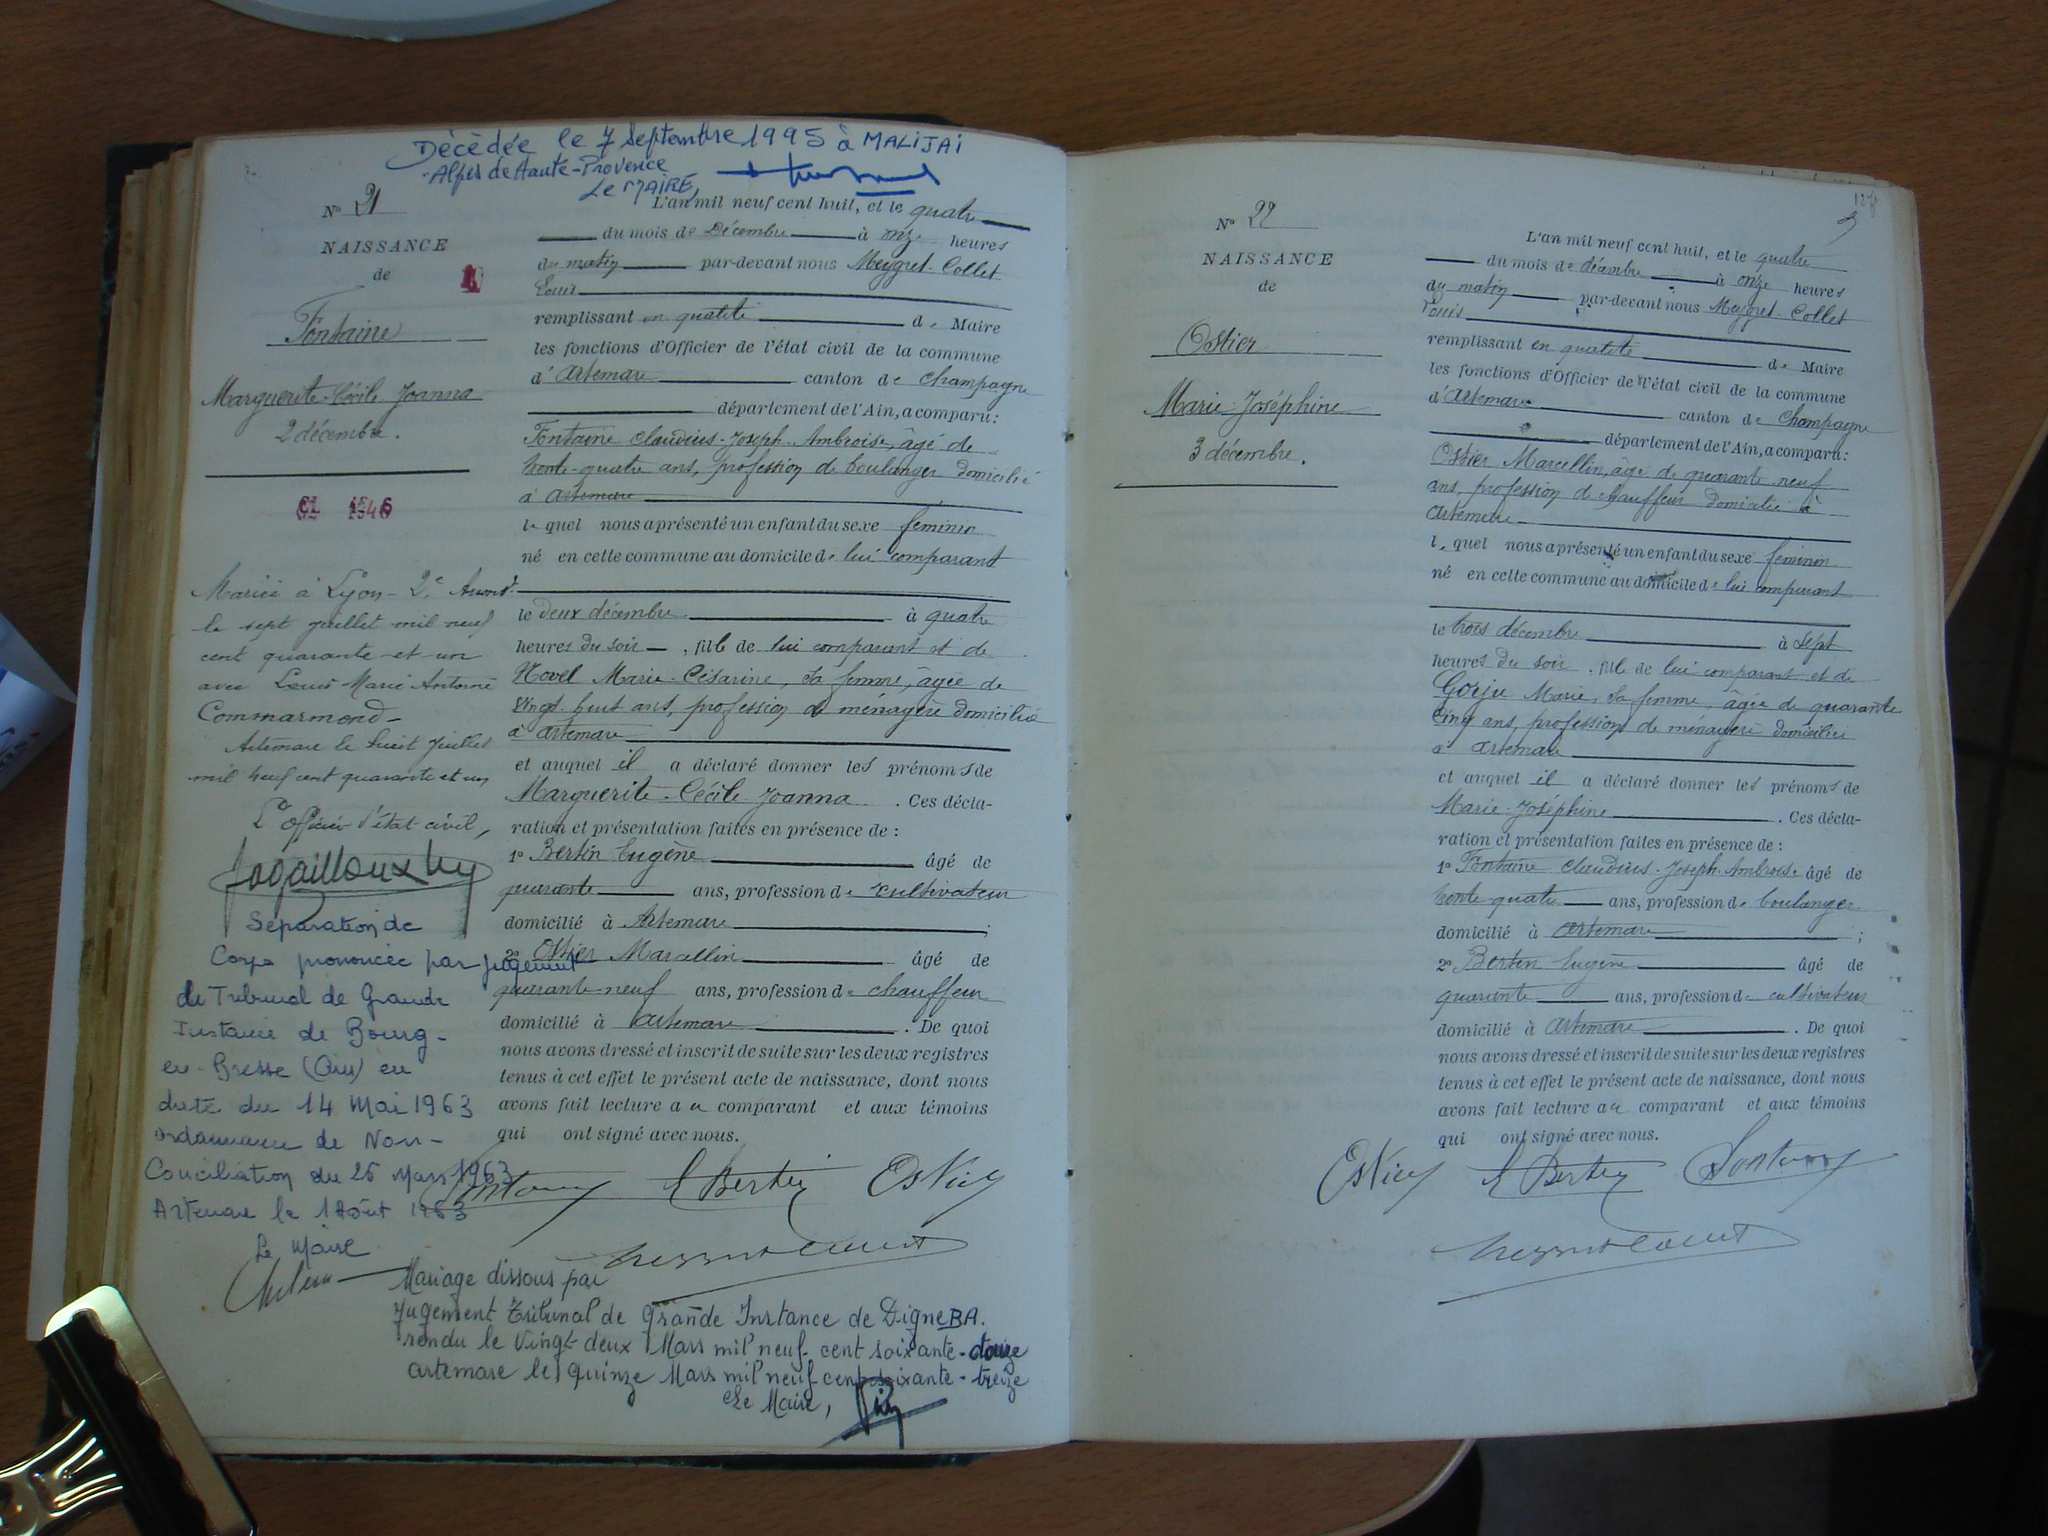 Décédée le 7 Septembre 1995 à MALIJAI
Alpes de Haute-Provence
Le MAIRE,
N° 21
NAISSANCE
de
Fontaine
Marguerite-Cécile Joanna
2 décembre.
Mariée à Lyon - 2e Arrond.t
le sept juillet mil neuf
cent quarante et un
avec Louis Marie Antoine
Commarmond -
Artemare le huit Juillet
mil neuf cent quarante et un
L'officier d'état civil,
Séparation de
Corps prononcée par jugement
du Tribunal de Grande
Instance de Bourg-
en-Bresse (Ain) en
date du 14 Mai 1963
ordonnance de Non-
Conciliation du 26 Mars 1963
Artemare le 1 Août 1963
Le Maire
L'an mil neuf cent huit, et le quatre
du mois de Décembre à onze heures
du matin par-devant nous Meygret-Collet
Louis
remplissant en qualité de Maire
les fonctions d'Officier de l'état civil de la commune
d'Artemare canton de Champagne
département de l'Ain, a comparu:
Fontaine Claudius-Joseph-Ambroise, âgé de
trente-quatre ans, profession de boulanger domicilié
à Artemare
lequel nous a présenté un enfant du sexe féminin
né en cette commune au domicile de lui comparant
le deux décembre à quatre
heures du soir, fille de lui comparant et de
Novel Marie-Césarine, sa femme, âgée de
vingt-huit ans, profession de ménagère domiciliée
à Artemare
et auquel il a déclaré donner les prénoms de
Marguerite-Cécile Joanna. Ces décla-
ration et présentation faites en présence de :
1° Bertin Eugène âgé de
quarante ans, profession de cultivateur
domicilié à Artemare ;
2° Ostier Marcellin âgé de
quarante-neuf ans, profession de chauffeur
domicilié à Artemare. De quoi
nous avons dressé et inscrit de suite sur les deux registres
tenus à cet effet le présent acte de naissance, dont nous
avons fait lecture au comparant et aux témoins
qui ont signé avec nous.
Fontaine E Bertin Ostier
Meygret-Collet
Mariage dissous par
Jugement Tribunal de Grande Instance de Digne BA.
rendu le Vingt-deux Mars mil neuf cent soixante-douze
artemare le quinze Mars mil neuf cent soixante-treize
Le Maire,
N° 22
NAISSANCE
de
Ostier
Marie-Joséphine
3 décembre.
L'an mil neuf cent huit, et le quatre
du mois de décembre à onze heures
du matin par-devant nous Meygret-Collet
Louis
remplissant en qualité de Maire
les fonctions d'Officier de l'état civil de la commune
d'Artemare canton de Champagne
département de l'Ain, a comparu:
Ostier Marcellin, âgé de quarante neuf
ans, profession de chauffeur domicilié à
Artemare
lequel nous a présenté un enfant du sexe féminin
né en cette commune au domicile de lui comparant
le trois décembre à sept
heures du soir, fille de lui comparant et de
Gorju Marie, sa femme, âgée de quarante
cinq ans, profession de ménagère domiciliée
à Artemare
et auquel il a déclaré donner les prénoms de
Marie-Joséphine. Ces décla-
ration et présentation faites en présence de :
1° Fontaine Claudius-Joseph-Ambroise âgé de
trente-quatre ans, profession de boulanger
domicilié à Artemare ;
2° Bertin Eugène âgé de
quarante ans, profession de cultivateur
domicilié à Artemare. De quoi
nous avons dressé et inscrit de suite sur les deux registres
tenus à cet effet le présent acte de naissance, dont nous
avons fait lecture au comparant et aux témoins
qui ont signé avec nous.
Ostier E Bertin Fontaine
Meygret-Collet